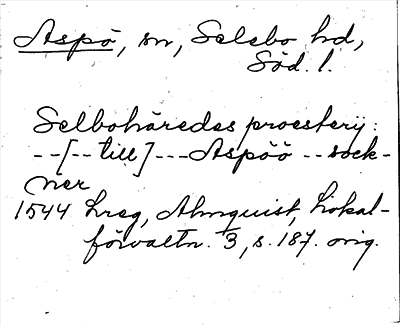 Aspö, sn, Selebo hd,
Söd. l.
Selbohäredes proesterij:
--[-- till]---Aspöö--sock-
ner
1544 hreg, Almquist, Lokal-
förvaltn. 3, s. 187. orig.